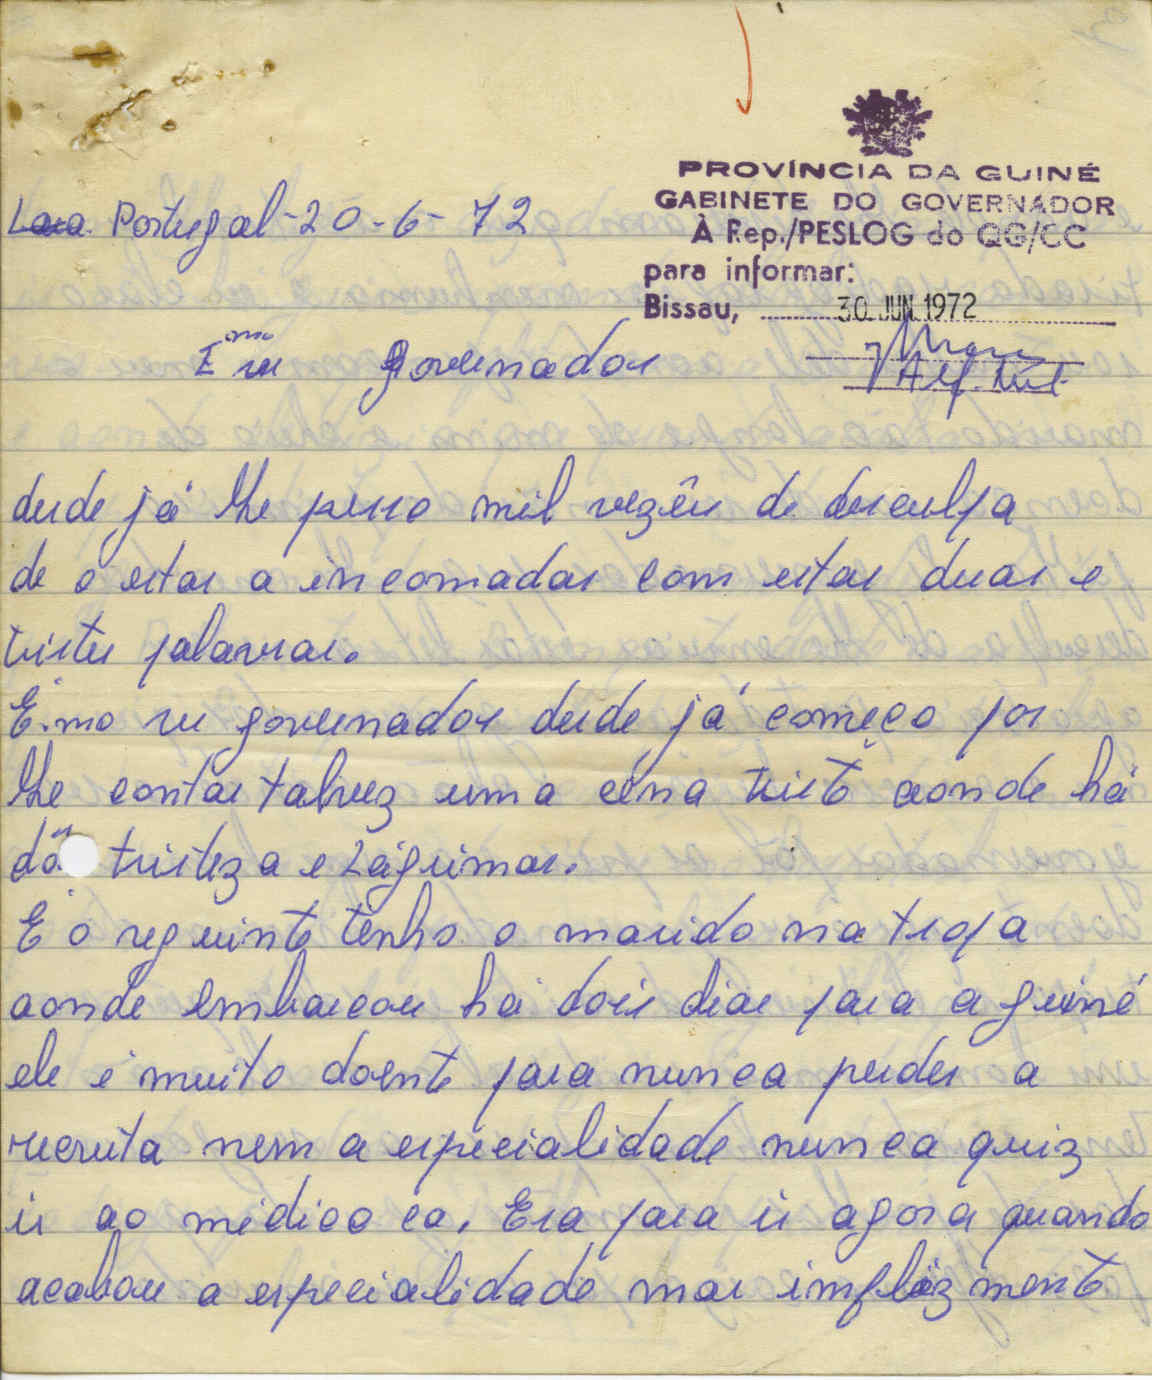 PROVÍNCIA DA GUINÉ
GABINETE DO GOVERNADOR
À Rep./PESLOG do QG/CC
para informar:
Bissau, 30 JUN. 1972
Portugal-20-6-72
Emo sr governador
desde já lhe pesso mil vezês de desculpa
de o estar a incomadar com estas duas e
tristes palavras.
E.mo sr governador desde já começo por
lhe contar talvez uma cena tristê aonde há
dôr tristeza e Lágrimas.
E o seguinte tenho o marido na tropa
aonde embarcou há dois dias para a guiné
ele é muito doente para nunca perder a
recruta nem a especialidade nunca quiz
ir ao médico ca. Era para ir agora quando
acabou a especialidade mas imflizmente